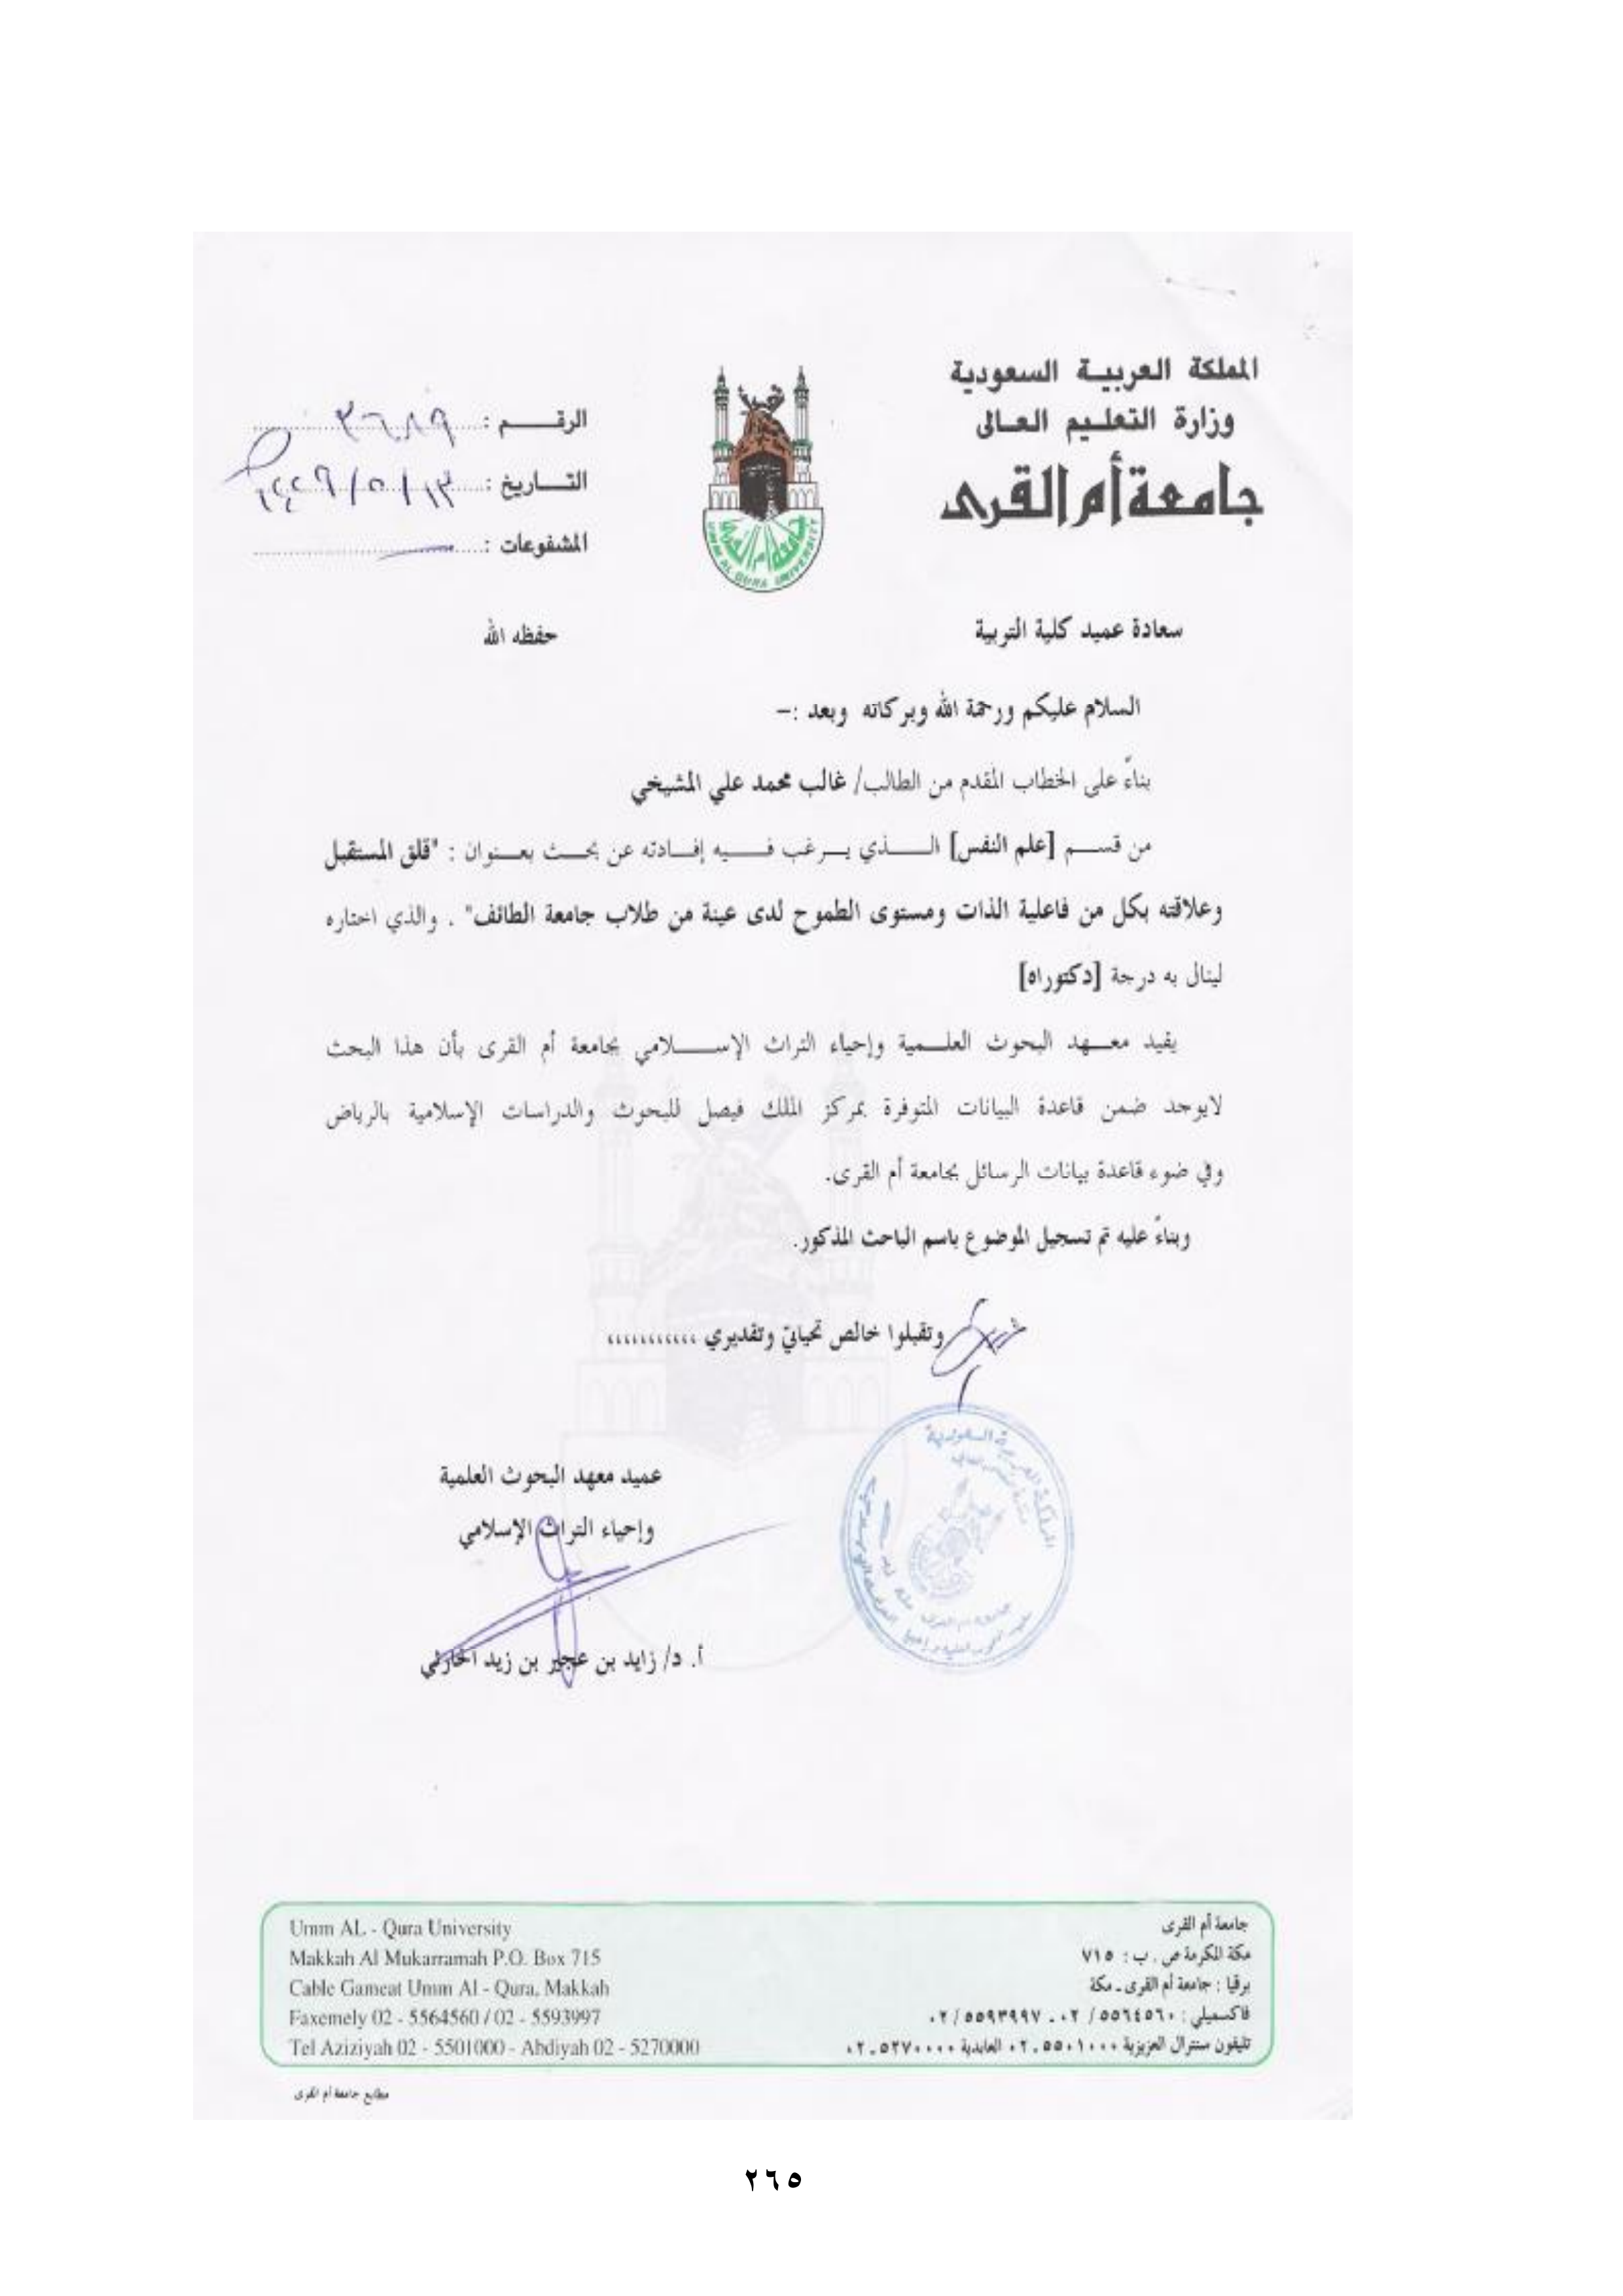 المملكة العربية السعودية
وزارة التعليم العالى
جامعة أم القرى
الرقم : ٣٦٨٩
التاريخ : ١٤٢٩/٥/١٣
المشفوعات :
UMM AL QURA UNIVERSITY
سعادة عميد كلية التربية حفظه الله
السلام عليكم ورحمة الله وبركاته وبعد :–
بناءً على الخطاب المقدم من الطالب/ غالب محمد علي المشيخي
من قسم [علم النفس] الذي يرغب فيه إفادته عن بحث بعنوان : "قلق المستقبل
وعلاقته بكل من فاعلية الذات ومستوى الطموح لدى عينة من طلاب جامعة الطائف" . والذي اختاره
لينال به درجة [دكتوراه]
يفيد معهد البحوث العلمية وإحياء التراث الإسلامي بجامعة أم القرى بأن هذا البحث
لايوجد ضمن قاعدة البيانات المتوفرة بمركز الملك فيصل للبحوث والدراسات الإسلامية بالرياض
وفي ضوء قاعدة بيانات الرسائل بجامعة أم القرى.
وبناءً عليه تم تسجيل الموضوع باسم الباحث المذكور.
وتقبلوا خالص تحياتي وتقديري ،،،،،،،،،،،
عميد معهد البحوث العلمية
وإحياء التراث الإسلامي
أ. د/ زايد بن عجير بن زيد الحارثي
جامعة أم القرى
مكة المكرمة ص . ب : ٧١٥
برقيا : جامعة أم القرى ـ مكة
فاكسميلي : ٥٥٦٤٥٦٠ / ٠٢ ـ ٥٥٩٣٩٩٧ / ٠٢
تليفون سنترال العزيزية ٥٥٠١٠٠٠ ـ ٠٢ العابدية ٥٢٧٠٠٠٠ ـ ٠٢
Umm AL - Qura University
Makkah Al Mukarramah P.O. Box 715
Cable Gameat Umm Al - Qura, Makkah
Faxemely 02 - 5564560 / 02 - 5593997
Tel Aziziyah 02 - 5501000 - Abdiyah 02 - 5270000
مطابع جامعة أم القرى
٢٦٥